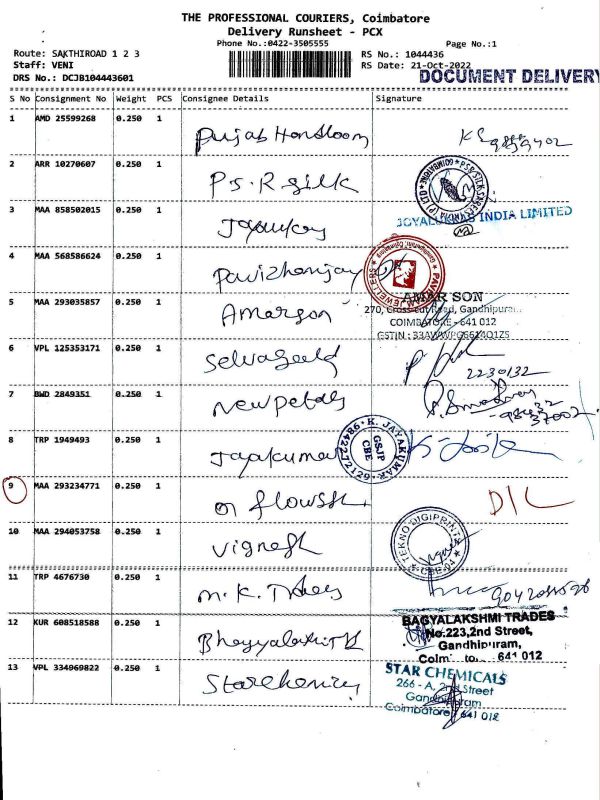 THE PROFESSIONAL COURIERS, Coimbatore
Delivery Runsheet - PCX
Phone No.:0422-3505555
Page No.:1
Route: SAKTHIROAD 1 2 3
RS No.: 1044436
Staff: VENI
RS Date: 21-Oct-2022
DRS No.: DCJB104443601
DOCUMENT DELIVERY
S No Consignment No Weight PCS Consignee Details Signature
1 AMD 25599268 0.250 1 Punjab Handloom
2 ARR 10270607 0.250 1 P.S.R Silk
3 MAA 858502015 0.250 1
JOYALUKKAS INDIA LIMITED
4 MAA 568586624 0.250 1 Pavizhamjay
PAVIZHAM JEWELLERS
5 MAA 293035857 0.250 1 Amarson
AMAR SON
270, Cross Cut Road, Gandhipuram
COIMBATORE - 641 012
6 VPL 125353171 0.250 1
2230132
7 BWD 2849351 0.250 1 New petals
8 TRP 1949493 0.250 1 Jayakumar
K. JAYAKUMAR
9842272129
GSJP
CBE
9 MAA 293234771 0.250 1 D/L
10 MAA 294053758 0.250 1 Vignesh
TEKNO DIGIPRINTS
11 TRP 4676730 0.250 1 M.K. Trades
12 KUR 608518588 0.250 1
BAGYALAKSHMI TRADES
No:223,2nd Street,
Gandhipuram,
641 012
13 VPL 334969822 0.250 1
STAR CHEMICALS
266 - A, 2nd Street
Gandhipuram
Coimbatore - 641 012